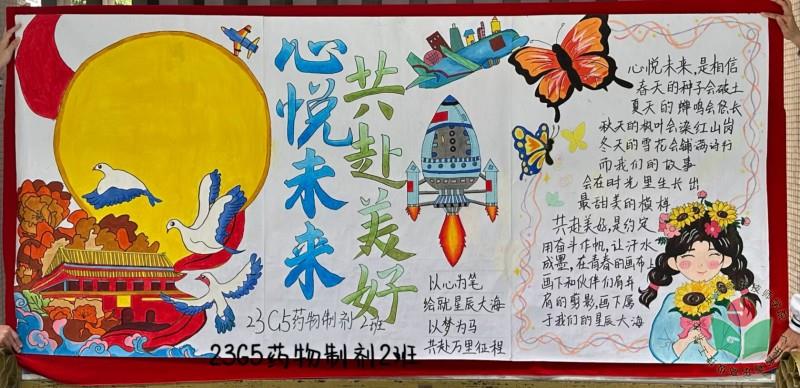 心悦未来
共赴美好
23G5药物制剂2班
23G5药物制剂2班
以心为笔
绘就星辰大海
以梦为马
共赴万里征程
心悦未来,是相信
春天的种子会破土
夏天的蝉鸣会悠长
秋天的枫叶会染红山岗
冬天的雪花会铺满诗行
而我们的故事
会在时光里生长出
最甜美的模样
共赴美好,是约定
用奋斗作帆,让汗水
成墨,在青春的画布上
画下和伙伴们肩并
肩的剪影,画下属
于我们的星辰大海